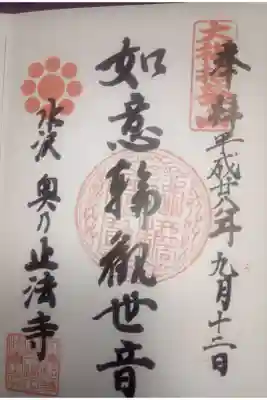 奉拝 平成廿八年 九月十二日
如意輪觀世音
水沢 奥乃正法寺